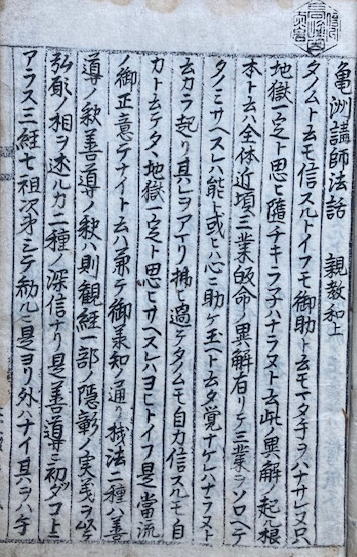 亀洲講師法話 親教和上
タノムト云モ信スルトイフモ御助ト云モマタ手ヲハナサレヌ只
地獄一定ト思ヒ随チキラ子ハナラヌト云此ノ異解ノ起ル根
本ト云ハ全体近頃三業皈命ノ異解有リテ三業ヲソロヘテ
タノミサヘスレハ能ト或ヒハ心ニ助ケ玉ヘト云タ覚ナケレハナラヌト
云カラ起リ其ヒヲアマリ拂ヒ過ケタノムモ自力信スルモ自
カトニケタ丶地獄一定ト思ヒサヘスレハヨヒトイフ是當流
ノ御正意テナイト云ハ兼テ御承知ノ通リ機法二種ハ善
導ノ釈善導ノ釈ハ則観経一部ノ隠彰ノ実義ヲ以
弘願ノ相ヲ述ルカ二種ノ深信ナリ是善導ニ初ダコト
アラス三経七祖次才シテ勧ルモ是ヨリ外ハナイ其ラハ手